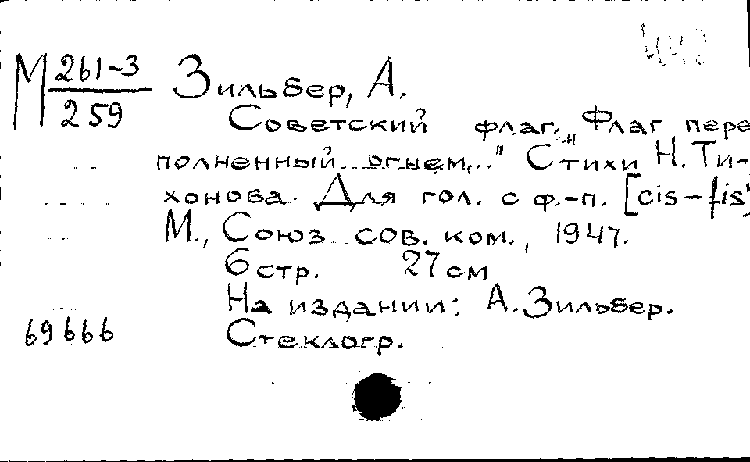 М 261-3 Зильбер, А.
259
Советский флаг. „Флаг пере
полненный огнем..." Стихи Н. Ти-
хонова. Для гол. с ф.-п. [cis-fis]
М., Союз сов. ком., 1947.
6 стр. 27 см
На издании: А. Зильбер.
69666 Стеклогр.